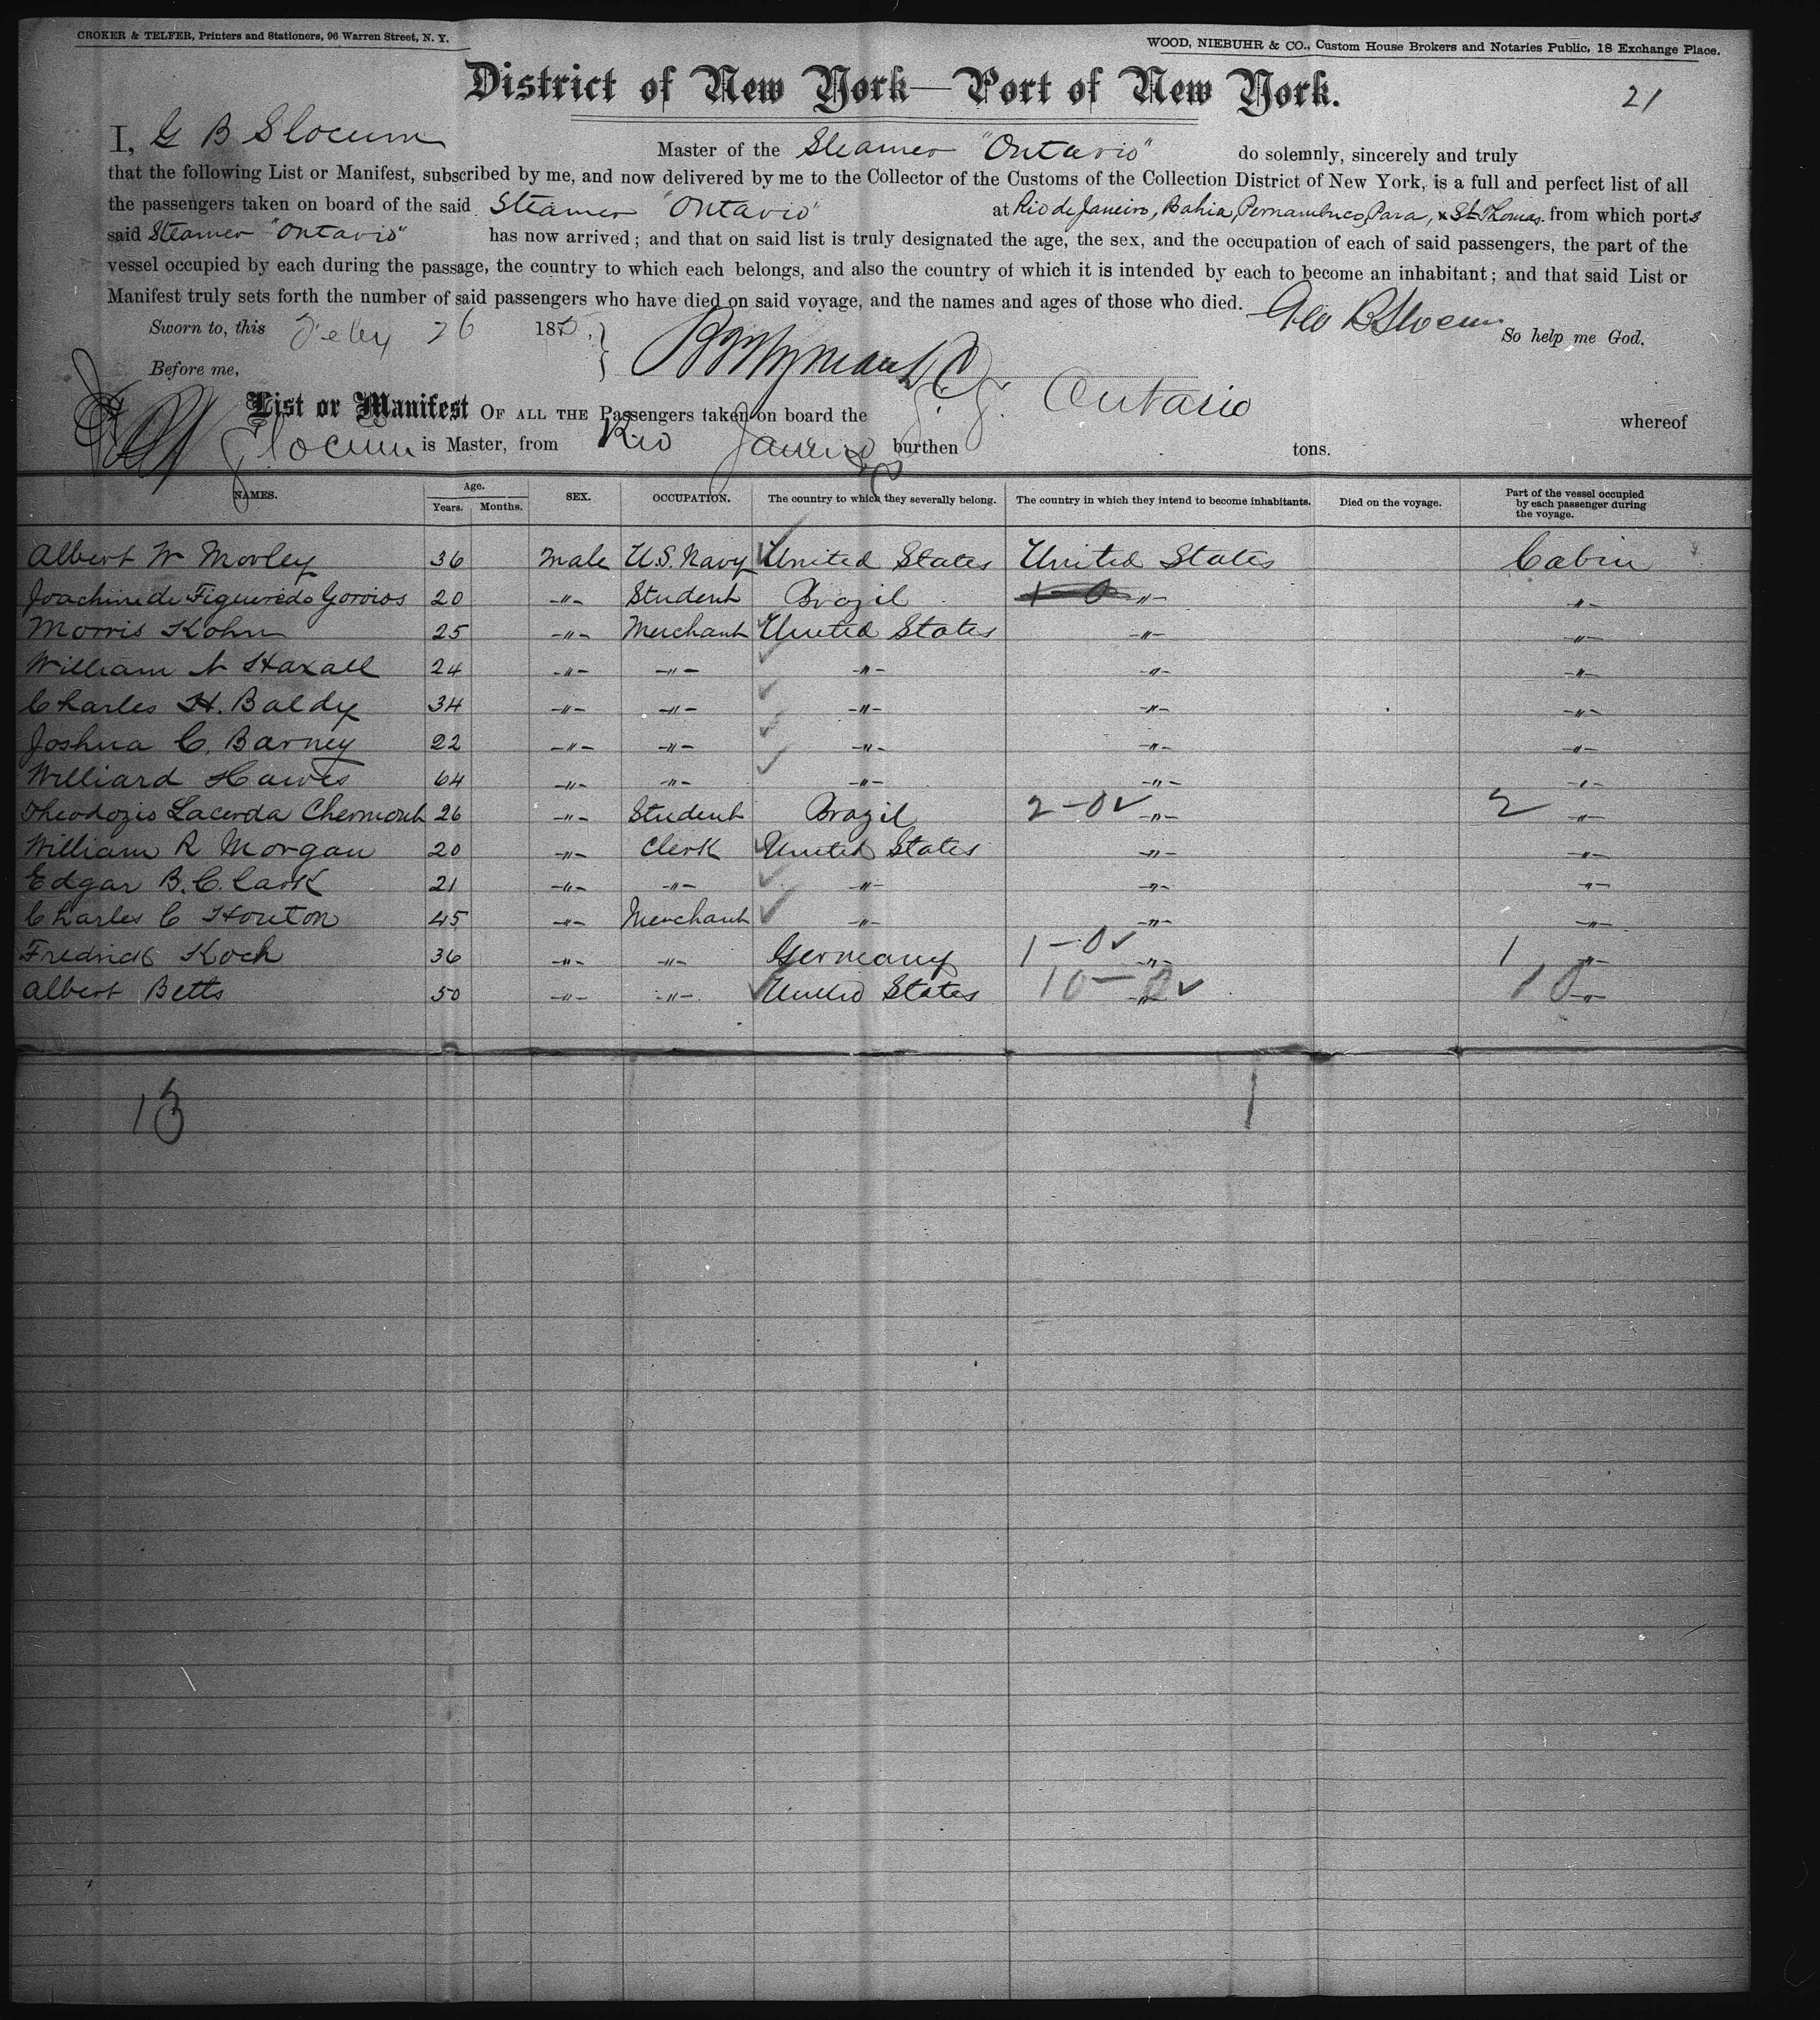 CROKER & TELFER, Printers and Stationers, 96 Warren Street, N. Y.
WOOD, NIEBUHR & CO., Custom House Brokers and Notaries Public, 18 Exchange Place.
District of New York—Port of New York.
21
I, G B Slocum Master of the Steamer "Ontario" do solemnly, sincerely and truly
that the following List or Manifest, subscribed by me, and now delivered by me to the Collector of the Customs of the Collection District of New York, is a full and perfect list of all
the passengers taken on board of the said Steamer "Ontario" at Rio de Janeiro, Bahia, Pernambuco, Para, & St Thomas. from which ports
said Steamer "Ontario" has now arrived; and that on said list is truly designated the age, the sex, and the occupation of each of said passengers, the part of the
vessel occupied by each during the passage, the country to which each belongs, and also the country of which it is intended by each to become an inhabitant; and that said List or
Manifest truly sets forth the number of said passengers who have died on said voyage, and the names and ages of those who died. Geo B Slocum
Sworn to, this Feby 26 187 So help me God,
Before me,
List or Manifest OF ALL THE Passengers taken on board the S.S. Ontario whereof
Slocum is Master, from Rio Janeiro burthen tons.
NAMES. Age. Years. Months. SEX. OCCUPATION. The country to which they severally belong. The country in which they intend to become inhabitants. Died on the voyage. Part of the vessel occupied by each passenger during the voyage.
Albert W Morley 36 Male U.S. Navy ✓ United States United States Cabin
Joachim de Figueredo 20 -"- Student Brazil -"- -"-
Morris Kohn 25 -"- Merchant ✓ United States -"- -"-
William Haxall 24 -"- -"- ✓ -"- -"- -"-
Charles H. Baldy 34 -"- -"- ✓ -"- -"- -"-
Joshua C. Barney 22 -"- -"- ✓ -"- -"- -"-
Williard Hawes 64 -"- -"- ✓ -"- -"- -"-
Theodozio Lacerda Chermont 26 -"- Student Brazil 2-0 ✓ -"- 2 -"-
William R Morgan 20 -"- Clerk ✓ United States -"- -"-
Edgar B. C. Cark 21 -"- -"- ✓ -"- -"- -"-
Charles C Houton 45 -"- Merchant ✓ -"- -"- -"-
Fredrick Koch 36 -"- -"- Germany 1-0 ✓ -"- 1 -"-
Albert Betts 50 -"- -"- ✓ United States 10-0 ✓ -"- 10 -"-
13 1